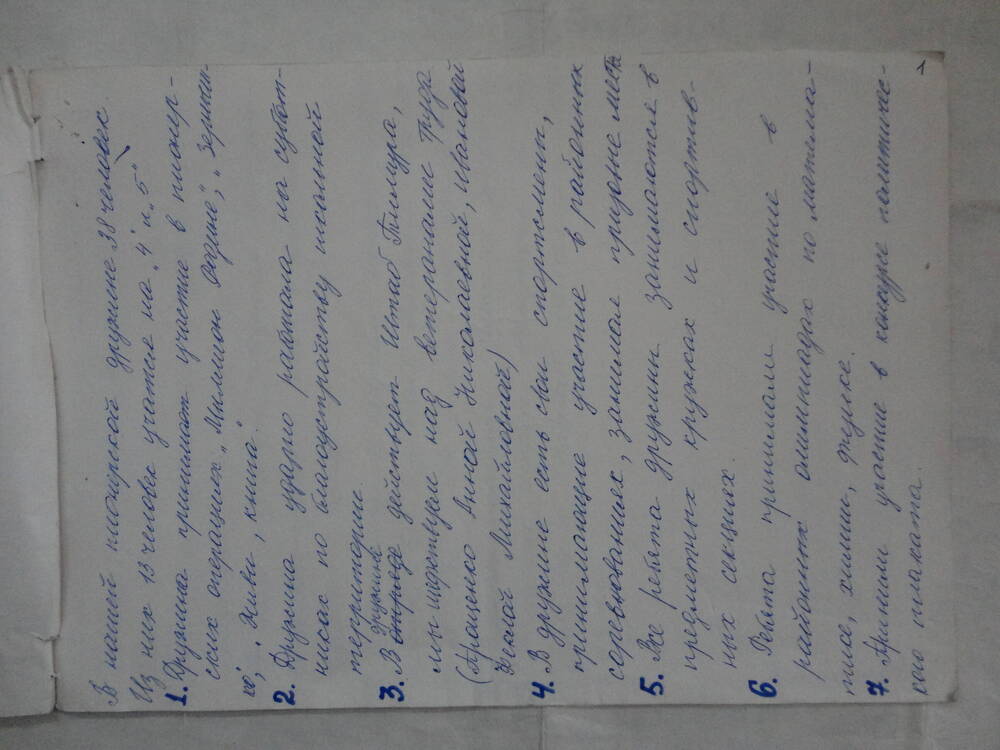 1
В нашей пионерской дружине 38 человек
Из них 13 человек учатся на „4" и „5"
1. Дружина принимает участие в пионер-
ских операциях „Миллион Родине", „Зерныш-
ко", „Живи, книга"
2. Дружина ударно работала на суббот-
никах по благоустройству школьной
территории.
3. В отряде дружине действует Штаб Тимура,
мы шефствуем над ветеранами труда
Анной Николаевной,
Михайловной)
4. В дружине есть свои спортсмены,
принимающие участие в районных
соревнованиях, занимая призовые места
5. Все ребята дружины занимаются в
предметных кружках и спортив-
ных секциях.
6. Ребята принимали участие в
районных олимпиадах по матема-
тике, химии, физике.
7. Приняли участие в конкурсе политичес-
кого плаката.